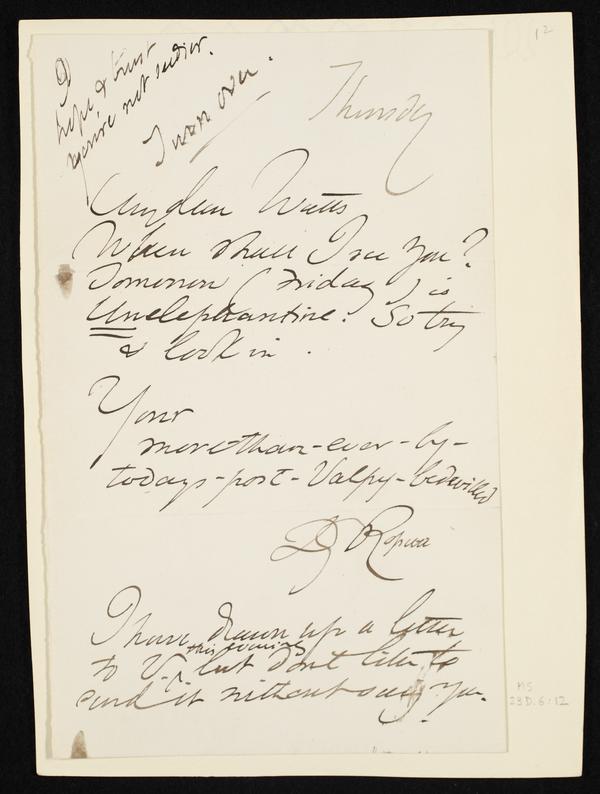 I
hope & trust
you're not seedier.
Turn over.
Thursday
My dear Watts
When shall I see you?
Tomorrow (Friday) is
Unelephantine. So try
& look in.
Your
more-than-ever-by-
todays-post-Valpy-bedevilled
D G R
I have drawn up a letter
this evening
to V. but don't like to
send it without seeing you.
12
MS
23D.6:12